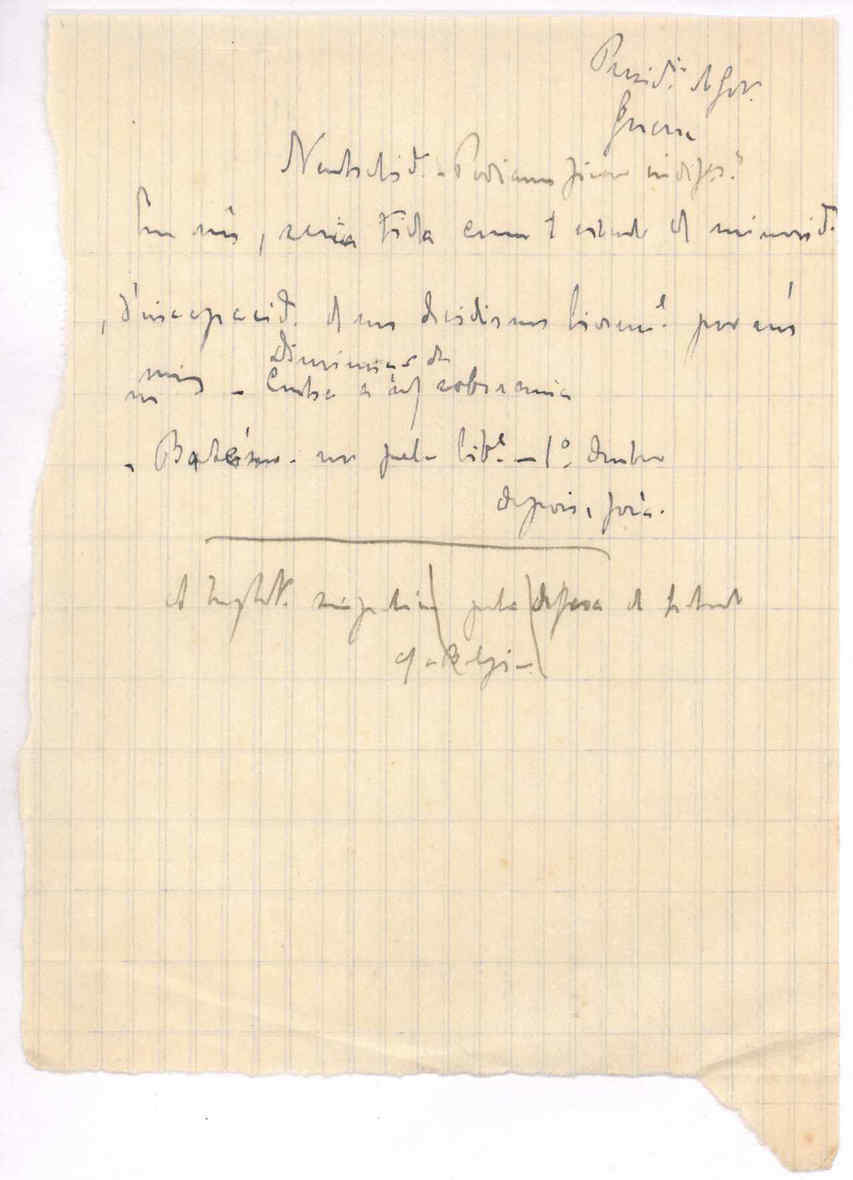 Presid.ª d Gov.
Guerra
Neutralid. - Podiamos ficar indifer.?
Em nós, seria tida como 1 estado d minorid.
, d'incapacid. d nos decidirmos livrem.e por nós
mmos - diminuiçao da
Contra a soberania
- Batemo-nos pela lib.e - 1º, dentro
depois, fora.
d Inglat. pela defesa d
a Belgi